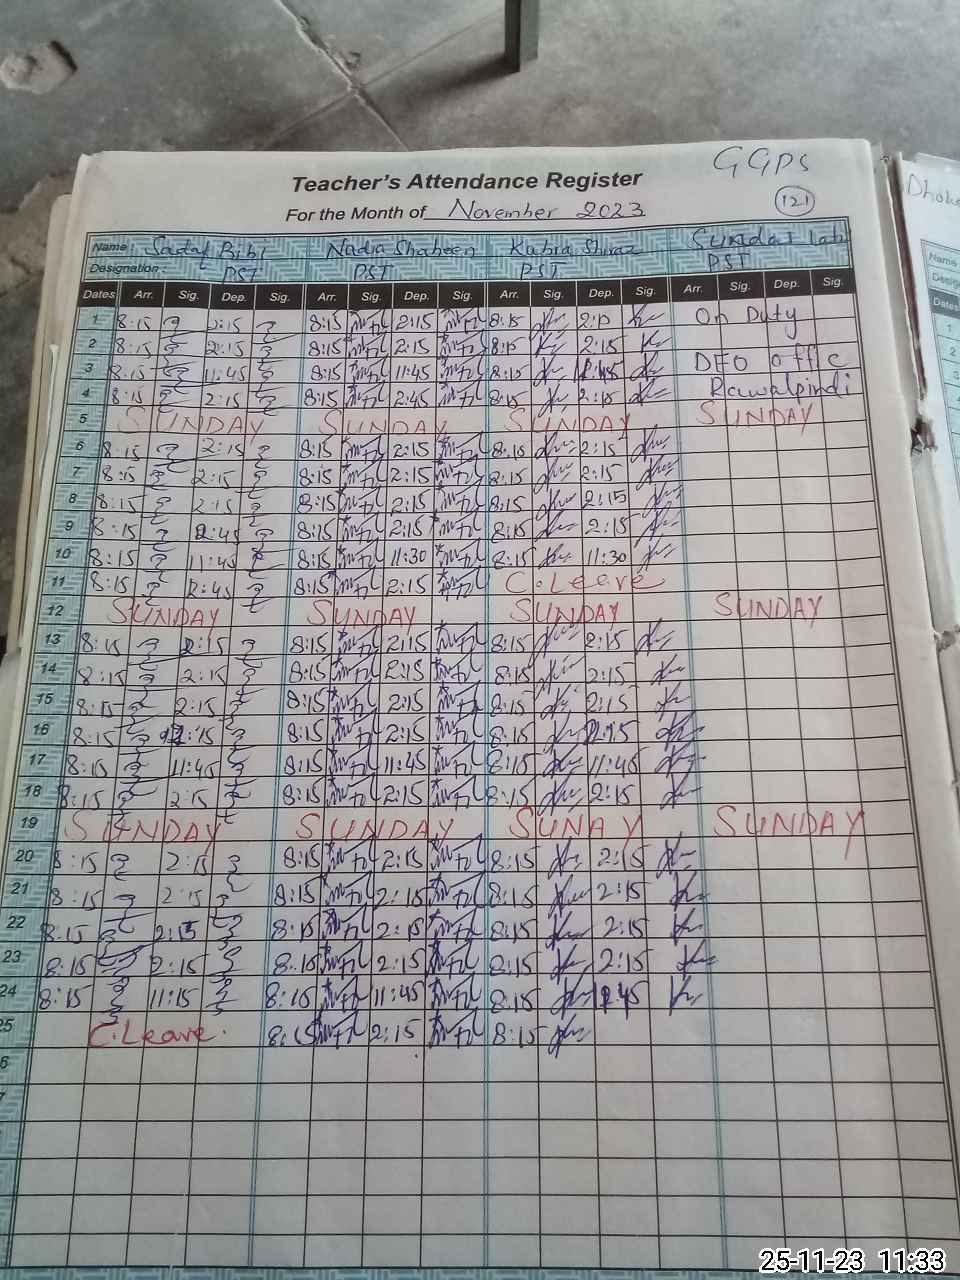 GGPS
Teacher's Attendance Register
121
For the Month of November 2023
Dhoke
Name: Sadaf Bibi Nadia Shaheen Kubra Shiraz Sundas
Designation: PST PST PST PST
Name
Dates Arr. Sig. Dep. Sig. Arr. Sig. Dep. Sig. Arr. Sig. Dep. Sig. Arr. Sig. Dep. Sig.
Dates
1 8:15 2:15 8:15 2:15 8:15 2:15 On Duty
2 8:15 2:15 8:15 2:15 8:15 2:15
3 8:15 11:45 8:15 11:45 8:15 11:45 DEO office
4 8:15 2:15 8:15 2:45 8:15 2:15 Rawalpindi
5 SUNDAY SUNDAY SUNDAY SUNDAY
6 8:15 2:15 8:15 2:15 8:15 2:15
7 8:15 2:15 8:15 2:15 8:15 2:15
8 8:15 2:15 8:15 2:15 8:15 2:15
9 8:15 2:45 8:15 2:15 8:15 2:15
10 8:15 11:45 8:15 11:30 8:15 11:30
11 8:15 2:45 8:15 2:15 C.Leave
12 SUNDAY SUNDAY SUNDAY SUNDAY
13 8:15 2:15 8:15 2:15 8:15 2:15
14 8:15 2:15 8:15 2:15 8:15 2:15
15 8:15 2:15 8:15 2:15 8:15 2:15
16 8:15 2:15 8:15 2:15 8:15 2:15
17 8:15 11:45 8:15 11:45 8:15 11:45
18 8:15 2:15 8:15 2:15 8:15 2:15
19 SUNDAY SUNDAY SUNAY SUNDAY
20 8:15 2:15 8:15 2:15 8:15 2:15
21 8:15 2:15 8:15 2:15 8:15 2:15
22 8:15 2:15 8:15 2:15 8:15 2:15
23 8:15 2:15 8:15 2:15 8:15 2:15
24 8:15 11:15 8:15 11:45 8:15 11:45
25 C.Leave. 8:15 2:15 8:15
6
7
25-11-23 11:33